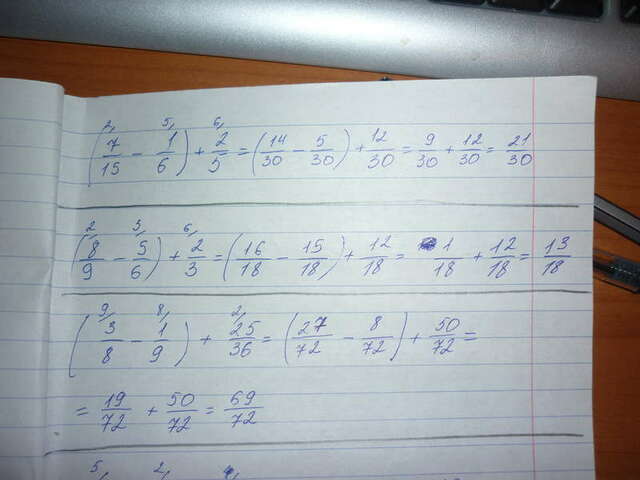 (7/15 - 1/6) + 2/5 = (14/30 - 5/30) + 12/30 = 9/30 + 12/30 = 21/30
(8/9 - 5/6) + 2/3 = (16/18 - 15/18) + 12/18 = 1/18 + 12/18 = 13/18
(3/8 - 1/9) + 25/36 = (27/72 - 8/72) + 50/72 =
= 19/72 + 50/72 = 69/72